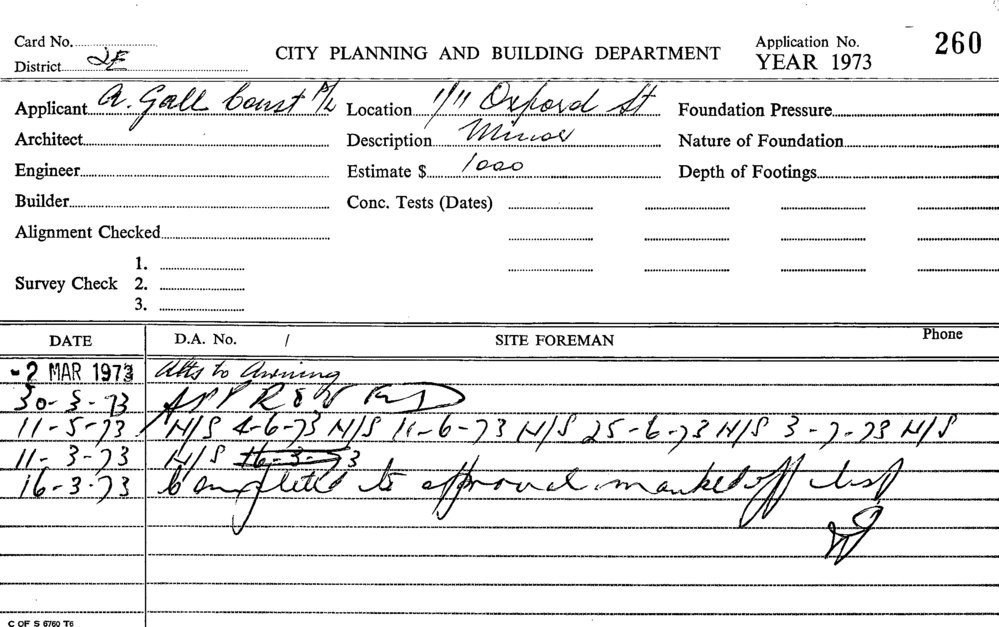 Card No.
District 2E
CITY PLANNING AND BUILDING DEPARTMENT
Application No. 260
YEAR 1973
Applicant A. Gall Const P/L Location 1/11 Oxford St Foundation Pressure
Architect Description Minor Nature of Foundation
Engineer Estimate $ 1000 Depth of Footings
Builder Conc. Tests (Dates)
Alignment Checked
1.
Survey Check 2.
3.
DATE D.A. No. / SITE FOREMAN Phone
-2 MAR 1973 Alts to Awning
30-3-73
11-5-73 N/S 4-6-73 N/S 11-6-73 N/S 25-6-73 N/S 3-7-73 N/S
11-3-73 N/S 16-3-73
16-3-73 Completed to approval marked off list
C OF S 6760 T6